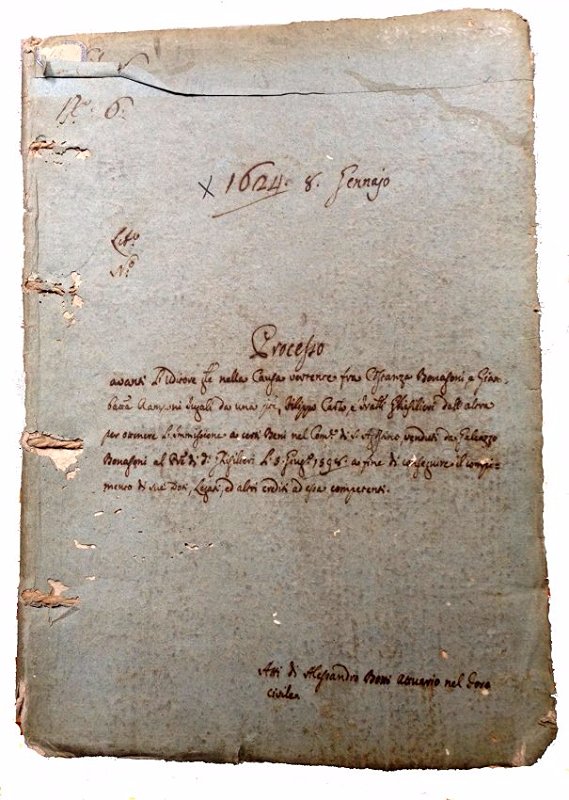 N.º 6.
1624. 8. Gennajo
Litª
Nº
Processo
avanti l'Uditore Gle nella Causa vertente fra Costanza Bonasoni, e Giam-
batta Ranponi Jugali da una pte, Filippo Carlo, e Fratti Ghisilieri dall' altra
per ottenere l'immissione a certi Beni nel Come di S. Agostino venduti da Galeazzo
Bonasoni al di di Ghisilieri Lì 8. Giugº 1598. a fine di conseguire il compi-
mento di sue Doti, Legati, ed altri crediti ad essa competenti.
Atti di Alessandro Boni attuario nel Foro
civile.